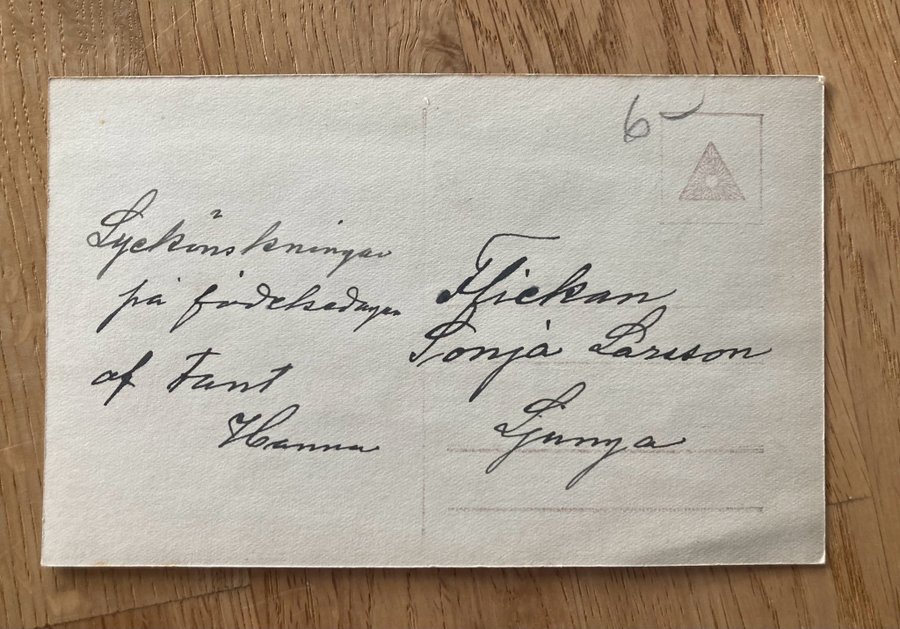 6-
Lyckönskningar
på födelsedagen
af Tant
Hanna
Flickan
Sonja Larsson
Ljunga